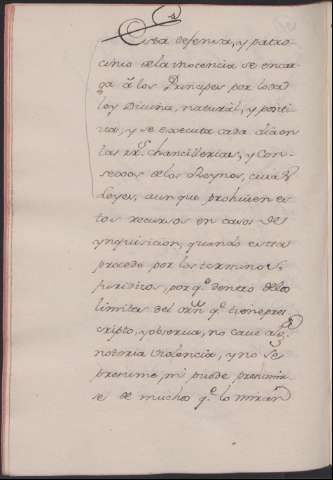 Esta defensa, y patro-
cinio de la inocencia se encar-
ga à los Principes por toda
ley Divina, natural, y positi-
va, y se executa cada dia en
las Rs. chancillerias, y Con-
sexos de los Reynos, cuias
Leyes, aunque prohiven es-
tos recursos en casos de
ynquisicion, quando esta
procede por los terminos
juridicos, porqe. dentro de los
limites del orn. qe. tiene pres-
cripto, y observa, no cave
notoria violencia, y no se
presume, ni puede presumir-
se de muchos qe. lo miran